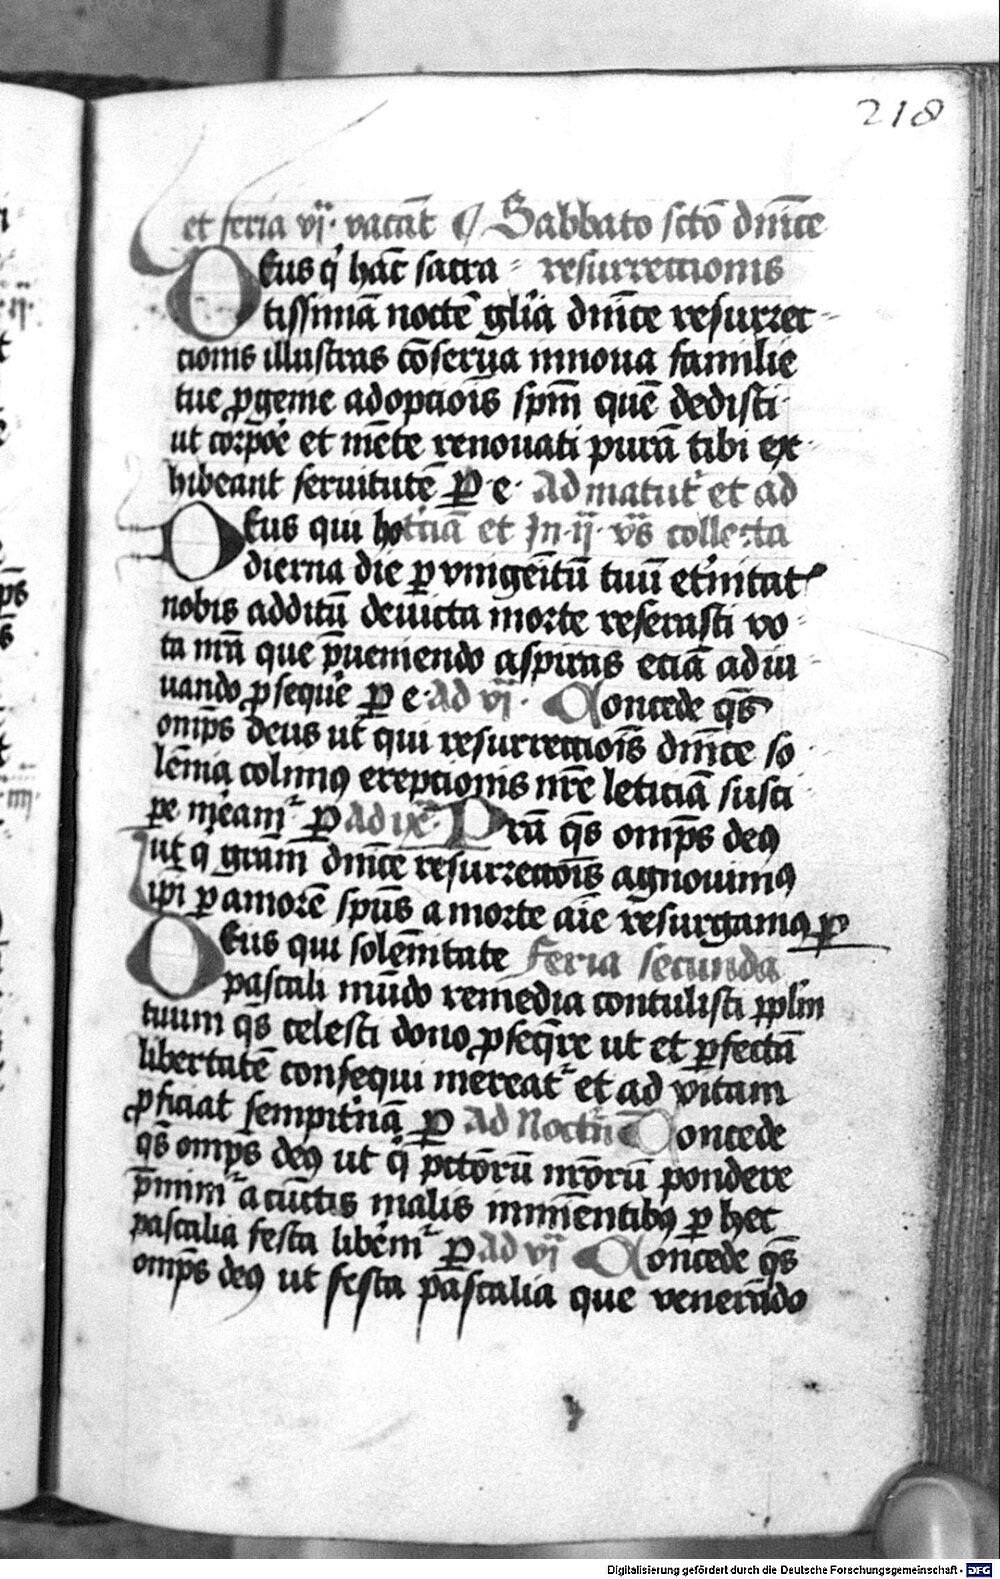 218
et feria vij· vacāt ¶ Sabbato sctō dnīce
Deus q̇ hāc sacra resurrectionis
tissimā noctē glīa dnīce resurrec
tionis illustras cōserua innoua familie
tue ꝓgenie adopciōis spm̄ quē dedisti
ut corpōe et mēte renouati purā tibi ex
hibeant seruitutē ꝑ e· Ad matut et ad
Deus qui ho tciā et In ij vs̄ collecta
dierna die ꝑ vnigeītū tuū etnitatꝭ
nobis additū deuicta morte reserasti vo
ta nrā que p̄ueniendo aspiras etiā adiu
uando ꝓsequē ꝑ e· Ad vj· Concede qs̄
omps̄ deus ut qui resurrectiōis dnīce so
lēnia colimꝯ ereptionis nrē leticiā susci
pe meam ꝑ Ad ix Pta qs̄ omps̄ deꝯ
ut q̇ gram̄ dnīce resurrectōis agnouimꝯ
ipi ꝑ amorē spūs a morte aīe resurgamꝯ ꝑ
Deus qui solēnitate Feria secunda
pascali mūdo remedia contulisti pplm̄
tuum qs celesti dono ꝓseqre ut et ꝑfectā
libertatē consequi mereat et ad vitam
ꝓficiat sempitnā ꝑ Ad Noctn Concede
qs̄ omps̄ deꝯ ut q̇ pctōrū nrōrū pondere
p̄mim a cūctis malis imminentibꝯ ꝑ hec
pascalia festa libem ꝑ Ad vij Concede qs̄
omps̄ deꝯ ut festa pascalia que venerādo
Digitalisierung gefördert durch die Deutsche Forschungsgemeinschaft - DFG